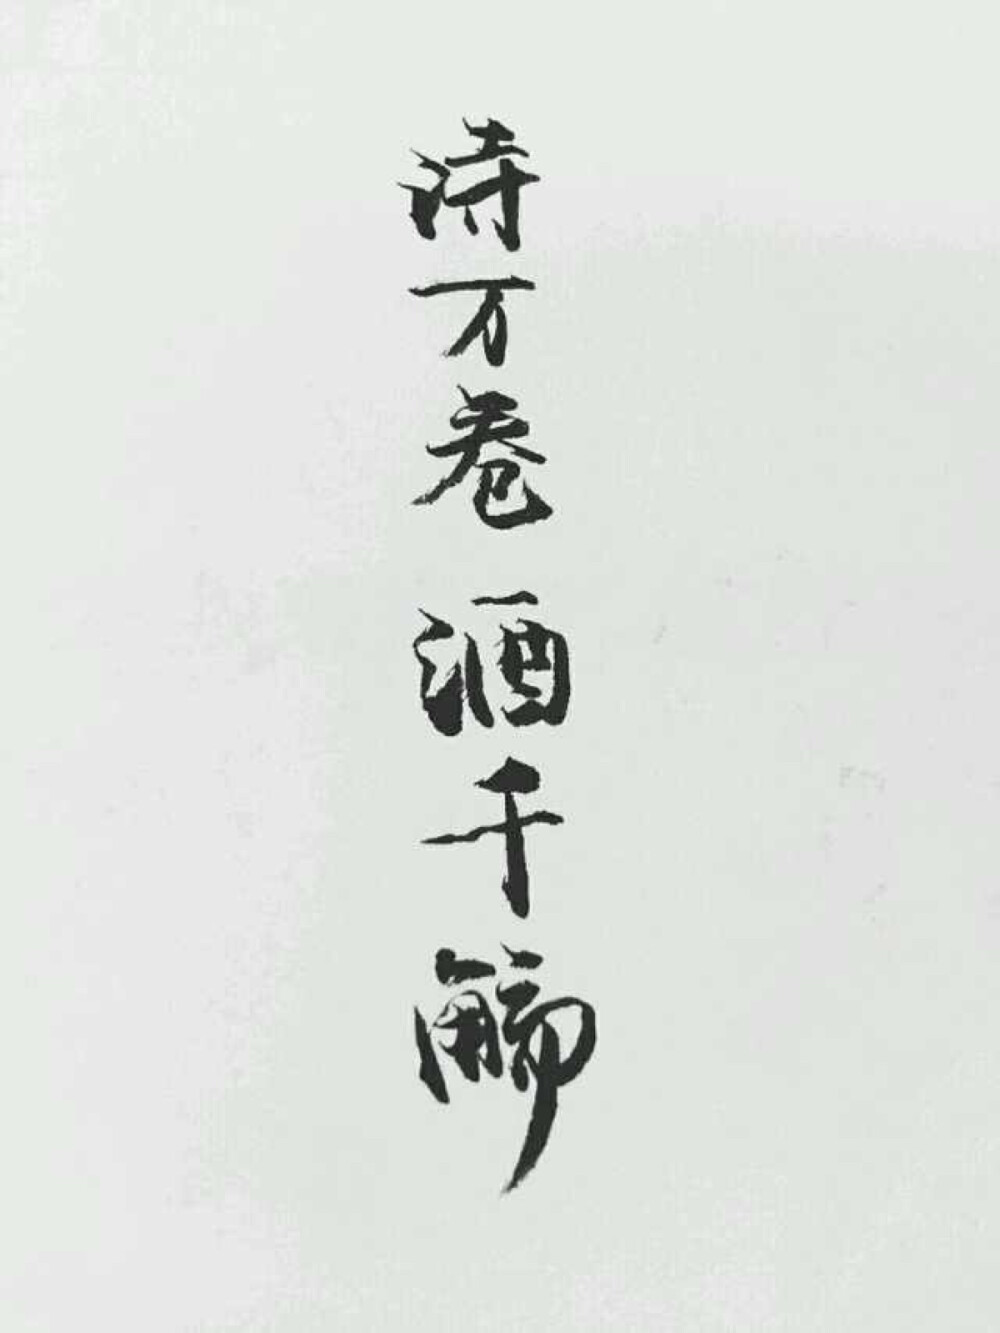 诗万卷 酒千觞